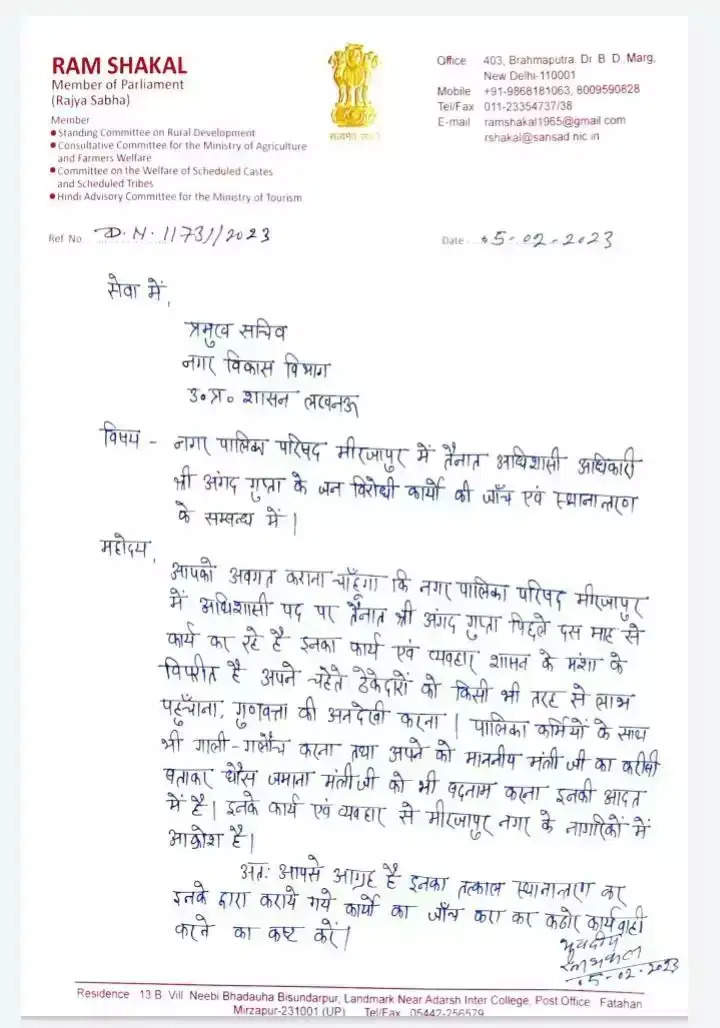 RAM SHAKAL
Member of Parliament
(Rajya Sabha)
Member
• Standing Committee on Rural Development
• Consultative Committee for the Ministry of Agriculture
and Farmers Welfare
• Committee on the Welfare of Scheduled Castes
and Scheduled Tribes
• Hindi Advisory Committee for the Ministry of Tourism
सत्यमेव जयते
Office 403, Brahmaputra, Dr B D Marg,
New Delhi-110001
Mobile +91-9868181063, 8009590828
Tel/Fax 011-23354737/38
E-mail ramshakal1965@gmail.com
rshakal@sansad nic in
Ref No. D.N. 1173//2023
Date 05-02-2023
सेवा में,
प्रमुख सचिव
नगर विकास विभाग
उ०प्र० शासन लखनऊ
विषय - नगर पालिका परिषद मीरजापुर में तैनात अधिशासी अधिकारी
श्री अंगद गुप्ता के जन विरोधी कार्यो की जाँच एवं स्थानान्तरण
के सम्बन्ध में।
महोदय,
आपको अवगत कराना चाहूँगा कि नगर पालिका परिषद मीरजापुर
में अधिशासी पद पर तैनात श्री अंगद गुप्ता पिछले दस माह से
कार्य कर रहे है इनका कार्य एवं व्यवहार शासन के मंशा के
विपरीत है अपने चहेते ठेकेदारों को किसी भी तरह से लाभ
पहुँचाना, गुणवत्ता की अनदेखी करना। पालिका कर्मियों के साथ
भी गाली-गलौच करना तथा अपने को माननीय मंत्री जी का करीबी
बताकर धौंस जमाना मंत्री जी को भी बदनाम करना इनकी आदत
में है। इनके कार्य एवं व्यवहार से मीरजापुर नगर के नागरिकों में
आक्रोश है।
अतः आपसे आग्रह है इनका तत्काल स्थानान्तरण कर
इनके द्वारा कराये गये कार्यों का जाँच करा कर कठोर कार्यवाही
करने का कष्ट करें।
भवदीय
रामशकल
05-02-2023
Residence 13 B Vill Neebi Bhadauha Bisundarpur, Landmark Near Adarsh Inter College, Post Office Fatahan
Mirzapur-231001 (UP) Tel/Fax 05442-256579